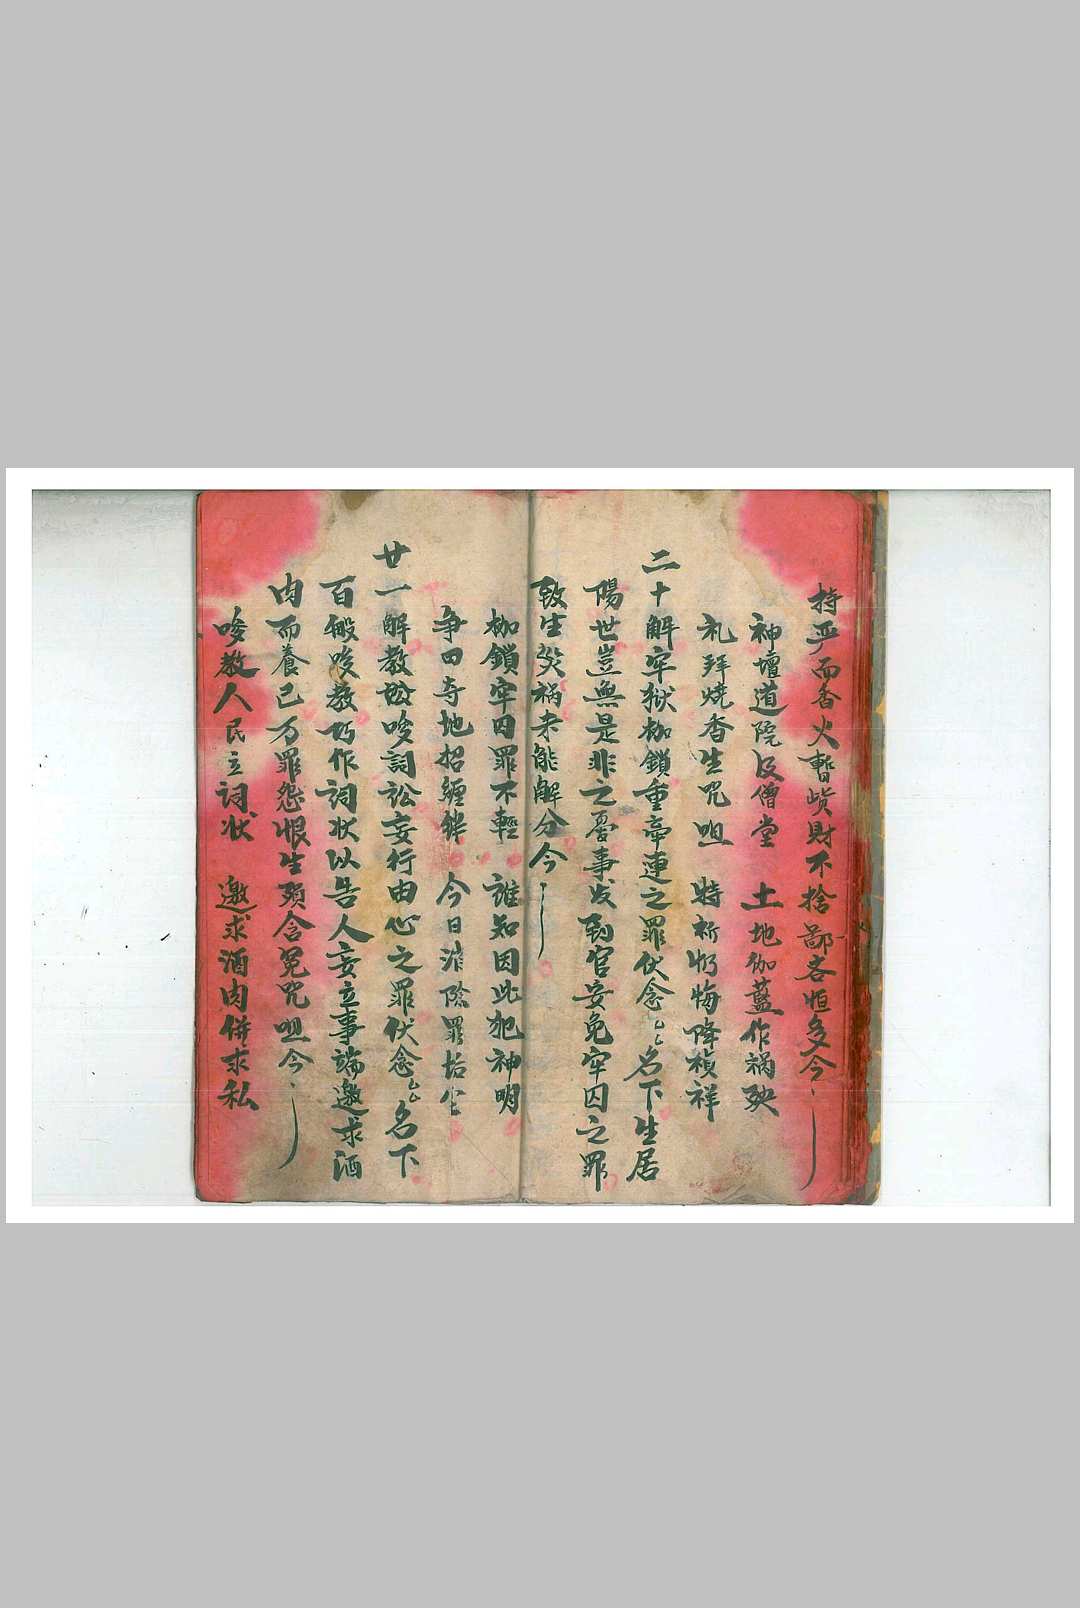 持严而香火暫赀財不捨鄙吝恒多今
神壇道院及僧堂　土地伽藍作禍殃
礼拜燒香生咒咀　特祈忏悔降禎祥
二十解牢獄枷鎖重牽連之罪伏念名下生居
陽世豈無是非之憂事发到官安免牢囚之罪
致生災禍未能解分今
枷鎖牢囚罪不輕　誰知因此犯神明
争田夺地招纏絆　今日消除罪垢
廿一解教唆詞訟妄行由心之罪伏念名下
百般唆教巧作詞状以告人妄立事端邀求酒
肉而養己万罪怨恨生須含冤咒咀今
唆教人民立詞状　邀求酒肉併求私